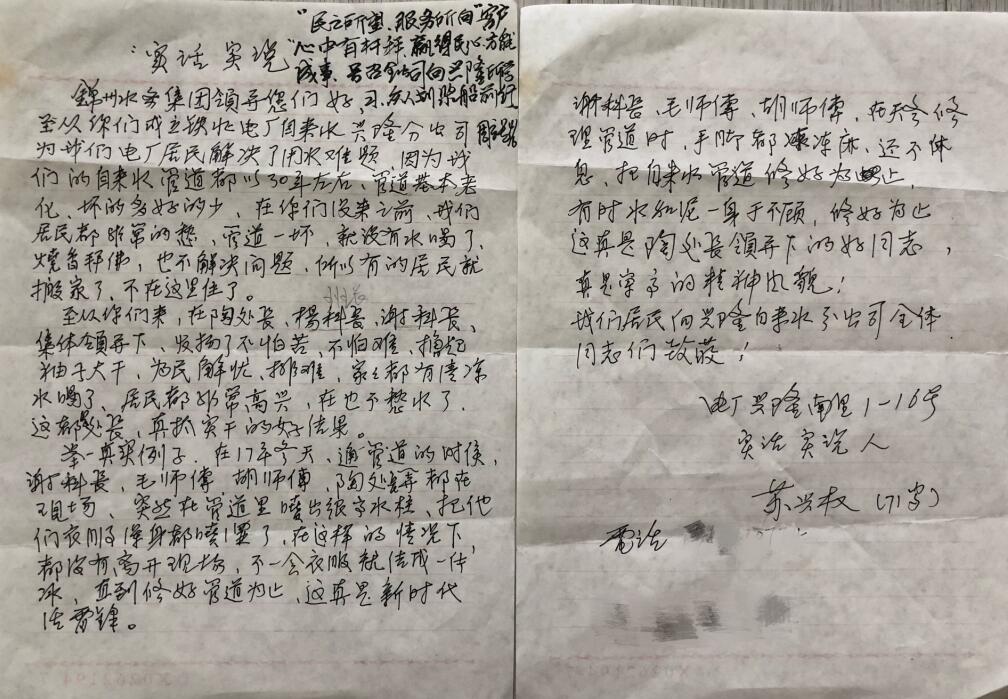 "实话实说"
"民之所望、服务所向"客户
心中有杆秤,赢得民心方能
成事.号召全公司向兴隆所学
习.
锦州水务集团领导您们好,
至从你们成立铁北电厂自来水兴隆分出司
为我们电厂居民解决了用水难题,因为我
们的自来水管道都以30年左右、管道基本老
化、坏的多好的少,在你们没来之前,我们
居民都非常的愁,管道一坏,就没有水喝了、
燒香拜佛,也不解决问题,所以有的居民就
搬家了、不在这里住了。
至从你们来,在陶处长,楊科長、谢科長、
集体領导下、发扬了不怕苦、不怕难、撸起
袖子大干,为民解忧、排难、家々都有清凉
水喝了、居民都非常高兴,在也不愁水了.
这都处長,真抓实干的好结果。
举一真实例子、在17年冬天、通管道的时候,
谢科長,毛师傅 胡师傅,陶处長都在
现场、突然在管道里喷出很高水柱、把他
们衣服浑身都喷湿了、在这样的情况下,
都没有离开现场,不一会衣服就结成一件
冰,直到修好管道为止,这真是新时代
活雷锋。
谢科長、毛师傅,胡师傅,在天冷修
理管道时,手脚都凍冻麻、还不休
息、把自来水管道修好为止,
有时水和泥一身于不顾,修好为止
这真是陶处長領导下的好同志,
真是崇高的精神风貌!
我们居民向兴隆自来水分出司全体
同志们致敬!
电厂兴隆南里1-16号
实话实说人
苏兴权(71岁)
电话